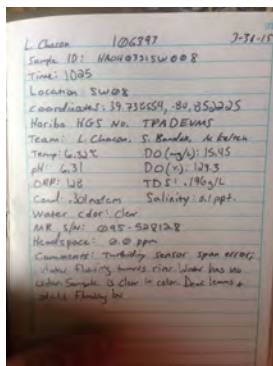 L. Chacon 106393 3-31-15
Sample ID: HA040331SW008
Time: 1025
Location SW08
Coordinates: 39.738554, -80.852225
Horiba HGS No. TPADEVMS
Team: L. Chacon, S. Bandak,
Temp: 6.32°C DO (mg/L): 15.45
pH: 6.31 DO (%): 129.3
ORP: 128 TDS: .196g/L
Cond: .301 ms/cm Salinity: 0.1 ppt.
Water color: clear
MR S/N: 095-528128
Headspace: 0.0 ppm
Comments: Turbidity sensor span error;
water flowing towards river. Water has no
odor. Sample is clear in color. Dead leaves &
sticks flowing by